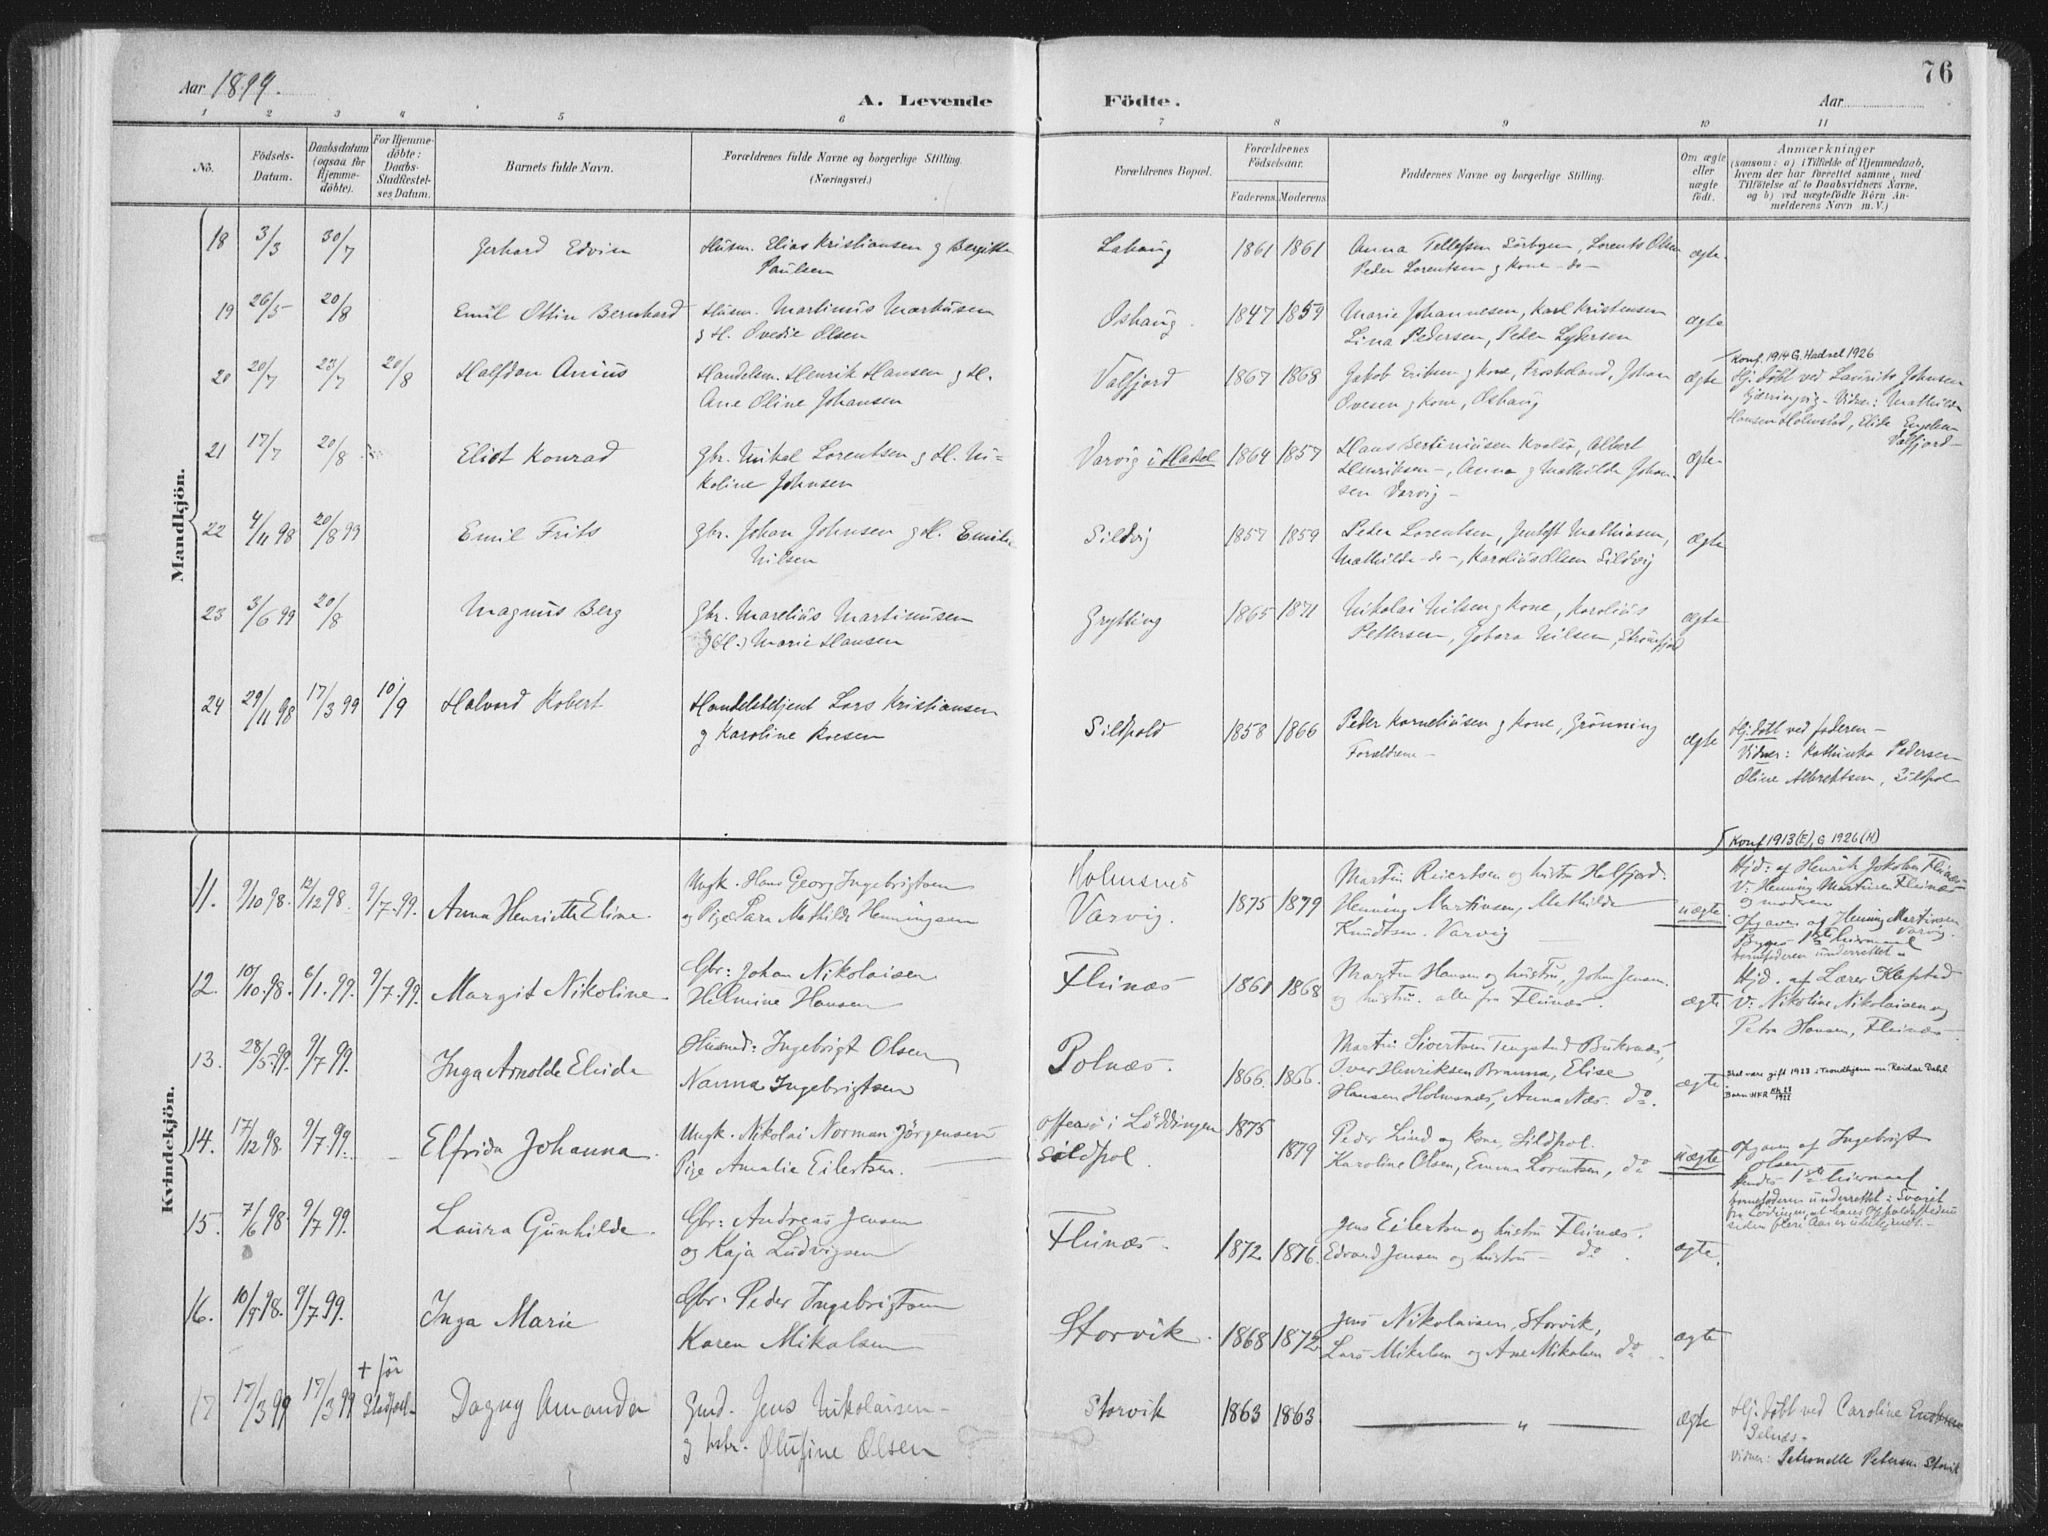 Aar 1899.
A. Levende Födte.
Aar
76
1 2 3 4 5 6 7 8 9 10 11
No.
Födsels-Datum.
Daabsdatum (ogsaa for Hjemme-döbte).
For Hjemme-döbte: Daabs-Stadfæstel-ses Datum.
Barnets fulde Navn.
Forældrenes fulde Navne og borgerlige Stilling. (Næringsvei.)
Forældrenes Bopæl.
Forældrenes Födselsaar.
Faderens. Moderens.
Faddernes Navne og borgerlige Stilling.
Om ægte eller uægte födt.
Anmærkninger
(saasom: a) i Tilfælde af Hjemmedaab,
hvem der har forrettet samme, med
Tilföielse af to Daabsvidners Navne,
og b) ved uægtefödte Börn An-
melderens Navn m. V.)
Mandkjön.
18 3/3 30/7 Gerhard Edvin Husm. Elias Kristiansen g Bergitte Lahaug 1861 1861 Anna Tellefsen Lorents Olsen ægte
Paulsen Peder Lorentsen g Kone -do-
19 26/5 20/8 Emil Ottin Bernhard Husm. Martinus Markusen Oshaug. 1847 1859 Marie Johannesen, Karl Kristensen ægte
g H. Ovedie Olsen Lina Pedersen, Peder Lydersen
Konf. 1914 G. Hadsel 1926
20 20/7 23/7 20/8 Halfdan Anius Handelsm. Henrik Hansen g H. Valfjord 1867 1868 Jakob Eriksen g Kone, Johan ægte Hj. döbt ved Laurits Johnsen
Ane Oline Johansen Ovesen g Kone, Oshaug Vidner: Mathilde
Hansen Holmstad, Elide
Valfjord-
21 17/7 20/8 Eliot Konrad Gbr. Mikal Lorentsen g H. Ni- Varvig i Hadsel 1864 1857 Hans Bertinussen Kvalsø, Albert ægte
koline Johnsen Henriksen -, Anna g Mathilde Johan-
sen Varvig -
22 4/11 98 20/8 99 Emil Frits Gbr. Johan Johnsen g H. Emilie Sildvig 1857 1859 Peder Lorentsen, Jentoft Mathiasen, ægte
Nilsen Mathilde -do-, Karolius Olsen Sildvig
23 3/6 99 20/8 Magnus Berg Gbr. Marelius Martinusen Grytting 1865 1871 Nikolai Nilsen g Kone, Karolius ægte
g (H.) Marie Hansen Pettersen, Nilsen,
24 29/11 98 17/3 99 10/9 Halvard Robert Handelsbetjent Lars Kristiansen Sildpold 1858 1866 Peder Korneliusen g Kone, Grönning ægte Hj. döbt ved faderen -
g Karoline Roesen Forældrene - Vidner: Kathinka Pedersen
Oline Albrektsen, Sildpol
Kvindekjön.
Konf 1913 (E), G 1926 (H)
11. 9/10 98. 12/12 98. 9/7 99. Anna Henriette Eline. Ungk. Hans Georg Ingebrigtsen Holmsnes 1875 1879 Martin Reiertsen og hustru Halfjord. uægte Hjd: af Henrik Jakobsen Flinæs
og Pige Sara Mathilde Henningsen Varvig. Henning Martinsen, Mathilde V: Henning Martinsen Flinæs
Knudtsen. Varvig og moderen
Opgaven af Henning Martinsen
Varvig.
barnefaderen underrettet -
12. 10/10 98. 6/1 99. 9/7 99. Margit Nikoline. Gbr: Johan Nikolaisen Flinæs 1861 1868 Martin Hansen og hustru, Johan Jensen ægte Hjd. af Lærer Klefstad
Helmine Hansen og hustru. alle fra Flinæs. V: Nikoline Nikolaisen og
Petra Hansen, Flinæs -
13. 28/5 99. 9/7 99. Inga Arnolde Elvida Husmd: Ingebrigt Olsen Polnæs. 1866. 1866. Martin Sivertsen Buknæs, ægte Skal være gift 1923 i Trondhjem m. Reidar Dahl
Nanna Ingebrigtsen Iver Henriksen Brænna, Elise
Hansen Holmsnæs, Anna Næs. do.
14. 17/12 98. 9/7 99. Elfrida Johanna. Ungk. Nikolai Norman Jørgensen Offersö i Lödingen 1875 Peder Lind og kone, Sildpol. uægte Opgaven af Ingebrigt
Pige Amalie Eilertsen. Sildpol 1879 Karoline Olsen, Emma Lorentsen, do Olsen
barnefaderen underrettet: Svaret
fra Lödingen, at hans Opholdssted
siden flere Aar er ubekjendt. -
15. 7/6 98. 9/7 99. Laura Gunhilde. Gbr: Andreas Jensen Flinæs. 1872 1876. Jens Eilertsen og hustru Flinæs. ægte.
og Kaja Ludvigsen Edvard Jensen og hustru - do.
16. 10/9 98. 9/7 99. Inga Marie Gbr: Peder Ingebrigtsen Storvik. 1868 1872 Jens Nikolaisen, Storvik, ægte
Karen Mikalsen Lars Mikalsen og Ane Mikalsen do.
17 17/3 99 17/3 99 + før Stadfæst- Dagny Amanda Gmd. Jens Nikolaisen - Storvik 1863 1863 — " — ægte Hj. döbt ved Caroline
g hstr. Olufine Olsen
Vidner: Petronelle Petersen Storvik